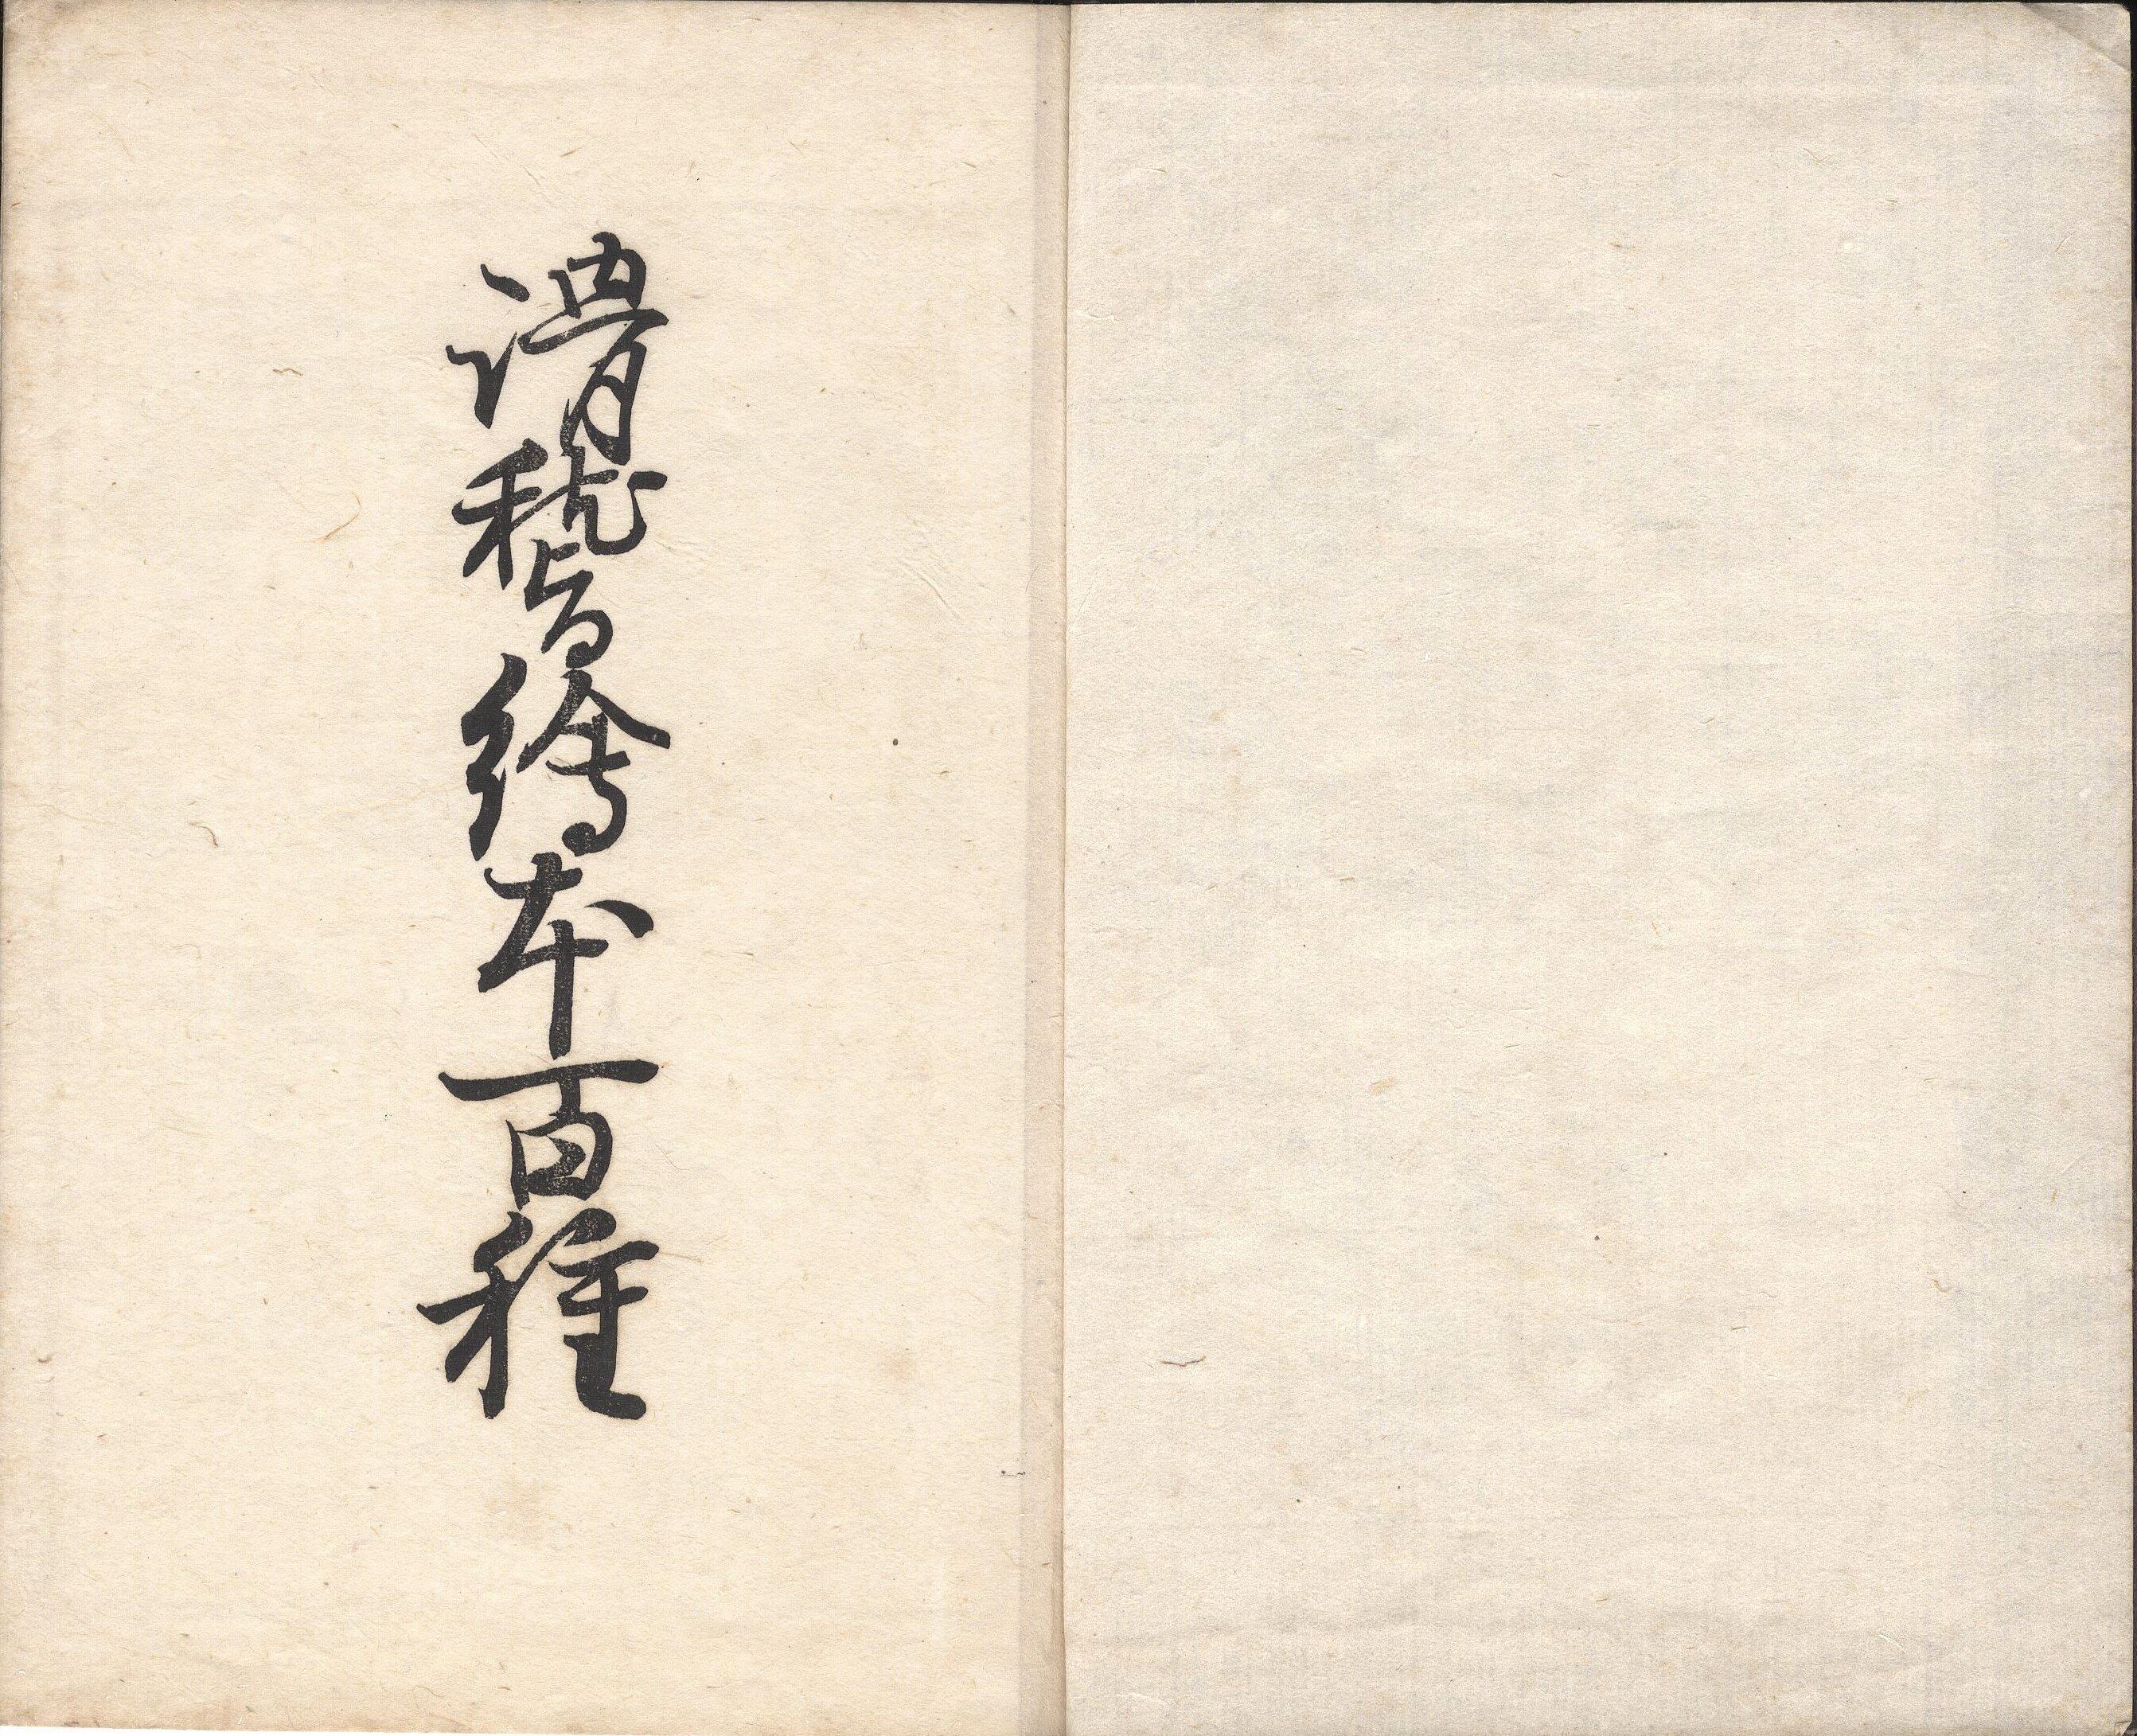 滑稽繪本百種